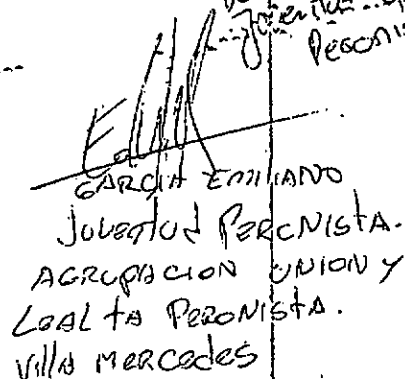 PERONIS
GARCIA EMILIANO
JUVENTUD PERONISTA.
AGRUPACION UNION Y
LEALTA PERONISTA.
Villa MERCEDES